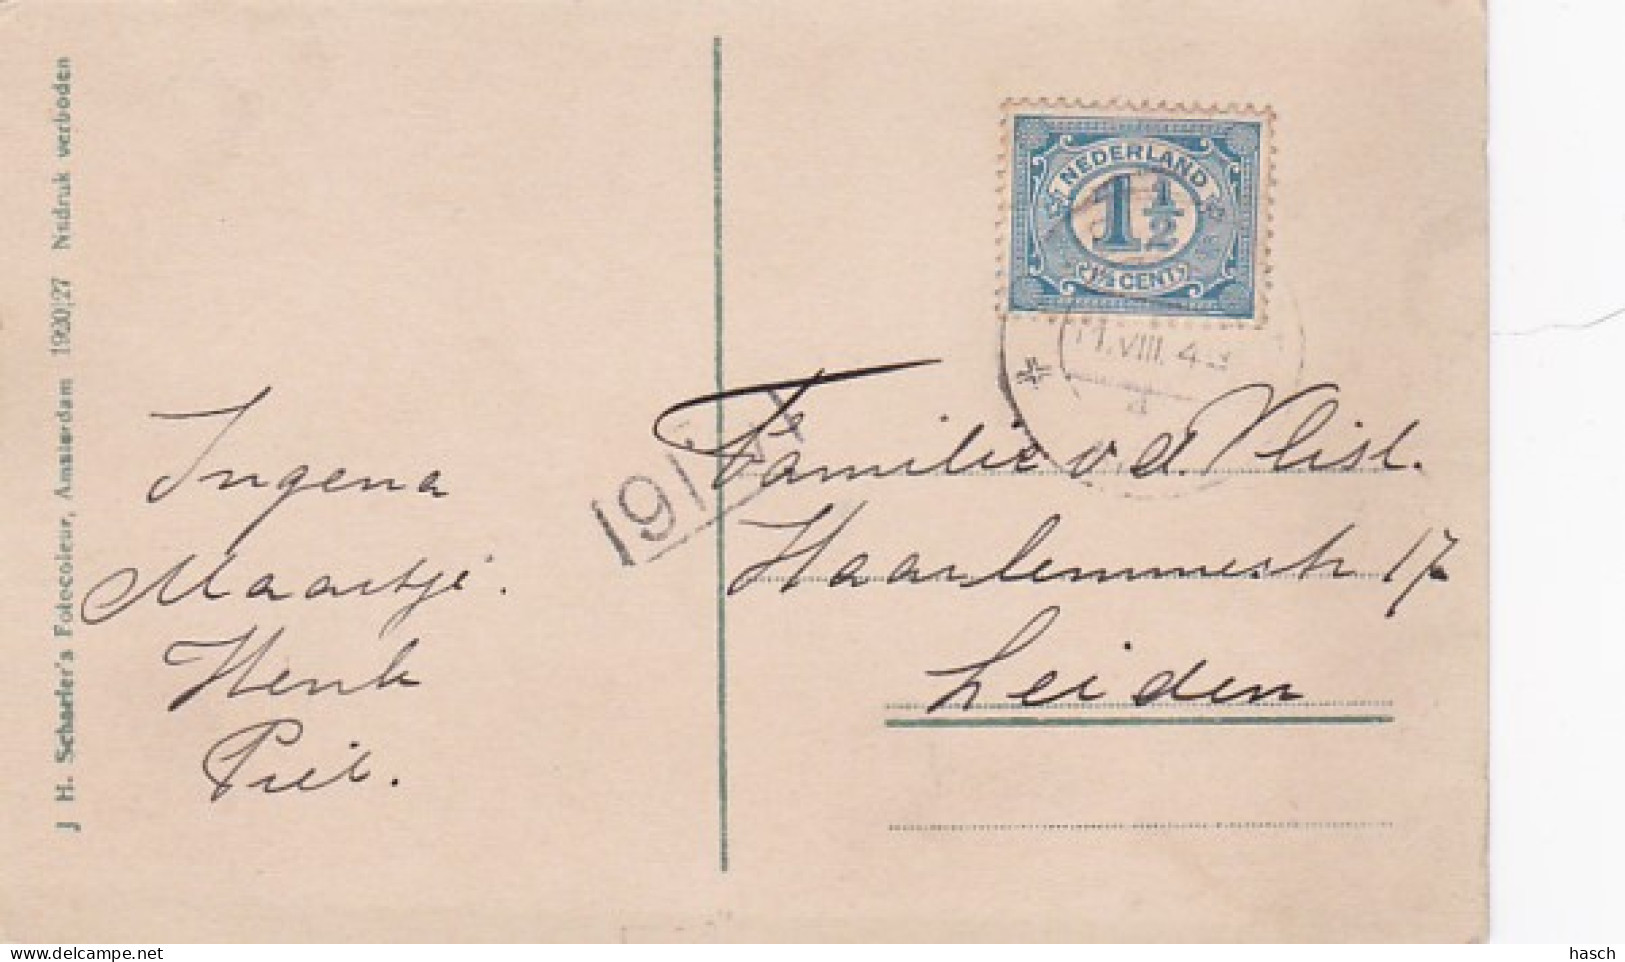 J H. Schaefer's Fotocoleur, Amsterdam 1920/27 Nadruk verboden
NEDERLAND
1 1/2
1½ CENT
11.VIII. 4
Ingena
Maartje.
Henk
Piet.
191
Familie v.d. Vlist.
Haarlemmerstr 17
Leiden
delcampe.net
hasch